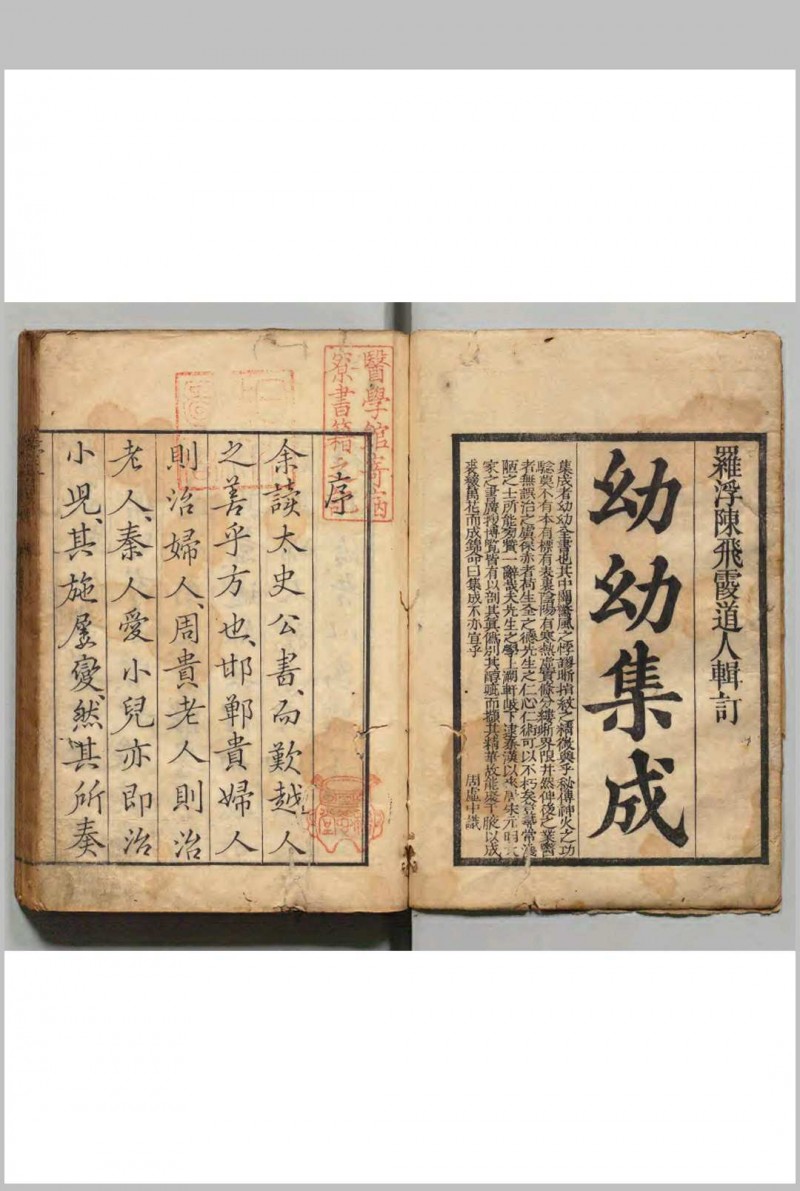 羅浮陳飛霞道人輯訂
幼幼集成
集成者幼幼全書也其中闢驚風之悖謬晰指紋之精微與乎秘傳神火之功
驗莫不有本有標有表裏陰陽有寒熱虛實條分縷晰界限井然俾後之業醫
者無誤治之虞保赤者荷生全之德先生之仁心仁術可以不朽矣豈尋常淺
陋之士所能窺贊一辭哉夫先生之學上溯軒岐下逮秦漢以來唐宋元明大
家之書廣搜博覧皆有以剖其真偽別其醇疵而擷其精華故能聚千腋以成
裘釀萬花而成錦命曰集成不亦宜乎
周虛中識
醫學館寄宿
寮書籍之記
序
余讀太史公書、而歎越人
之善乎方也、邯鄲貴婦人
則治婦人、周貴老人則治
老人、秦人愛小兒亦即治
小児、其施屡變、然其所奏